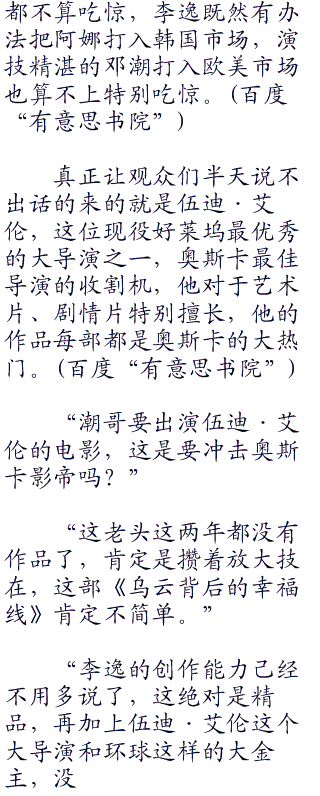 都不算吃惊，李逸既然有办
法把阿娜打入韩国市场，演
技精湛的邓潮打入欧美市场
也算不上特别吃惊。(百度
“有意思书院”)
真正让观众们半天说不
出话的来的就是伍迪·艾
伦，这位现役好莱坞最优秀
的大导演之一，奥斯卡最佳
导演的收割机，他对于艺术
片、剧情片特别擅长，他的
作品每部都是奥斯卡的大热
门。(百度“有意思书院”)
“潮哥要出演伍迪·艾
伦的电影，这是要冲击奥斯
卡影帝吗？”
“这老头这两年都没有
作品了，肯定是攒着放大技
在，这部《乌云背后的幸福
线》肯定不简单。”
“李逸的创作能力己经
不用多说了，这绝对是精
品，再加上伍迪·艾伦这个
大导演和环球这样的大金
主，没